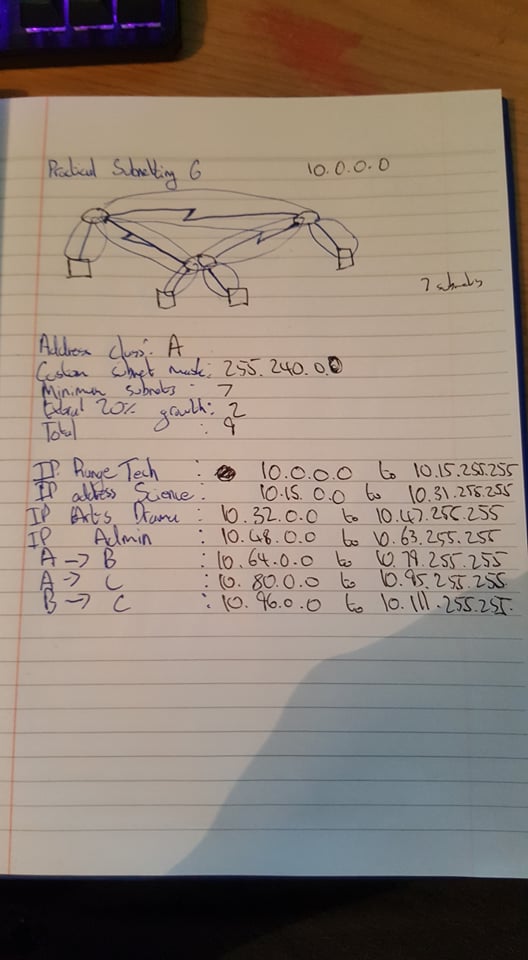 Practical Subnetting 6 10.0.0.0
7 subnets
Address class: A
Custom subnet mask: 255.240.0.0
Minimum subnets : 7
Extra 20% growth: 2
Total : 9
IP Range Tech : 10.0.0.0 to 10.15.255.255
IP address Science: 10.15.0.0 to 10.31.255.255
IP Arts Drama : 10.32.0.0 to 10.47.255.255
IP Admin : 10.48.0.0 to 10.63.255.255
A -> B : 10.64.0.0 to 10.79.255.255
A -> C : 10.80.0.0 to 10.95.255.255
B -> C : 10.96.0.0 to 10.111.255.255.